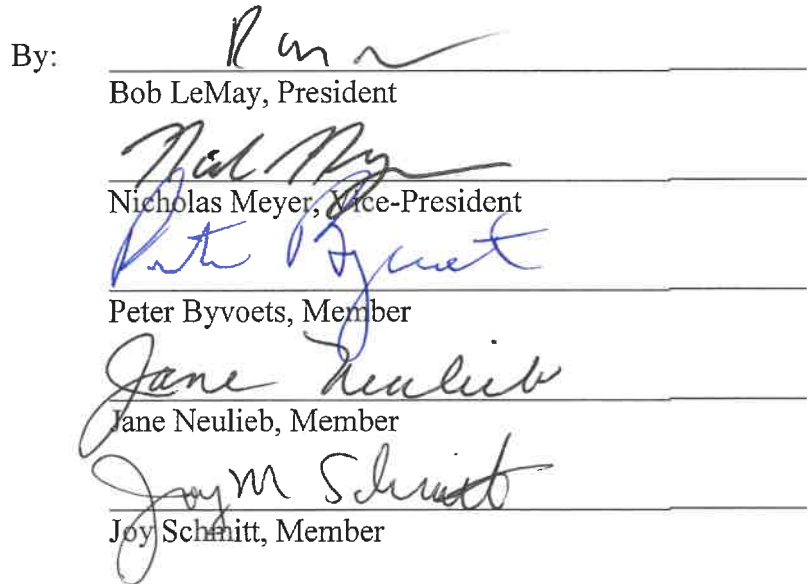 By:
Bob LeMay, President
Nicholas Meyer, Vice-President
Peter Byvoets
Peter Byvoets, Member
Jane Neulieb
Jane Neulieb, Member
Joy M Schmitt
Joy Schmitt, Member